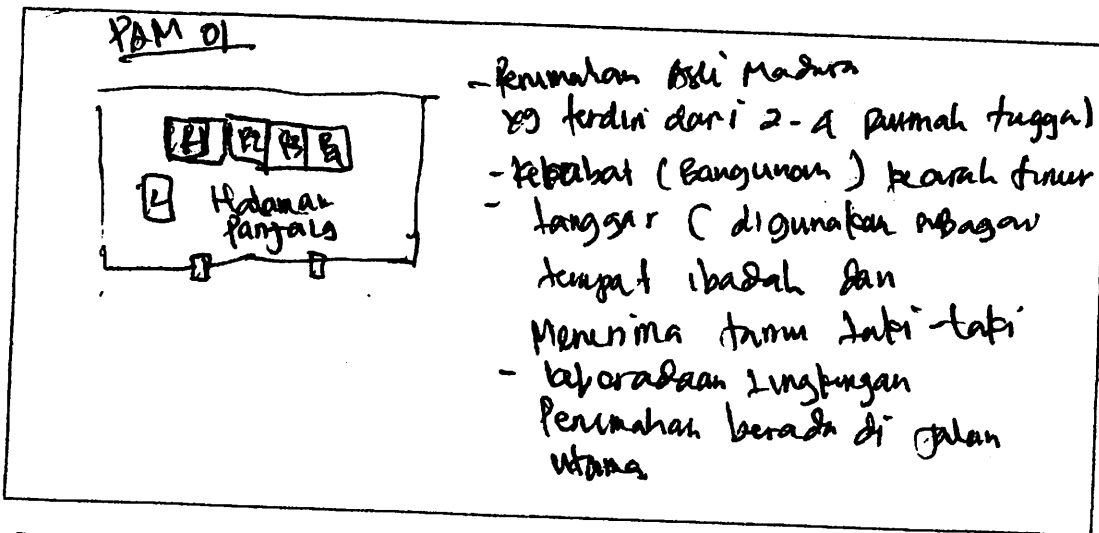 PAM 01
R1 R2 R3 R4
L
Halaman
Panjang
- Perumahan Asli Madura
yg terdiri dari 2-4 rumah tuggal
- (Bangunan) kearah timur
- langgar ( digunakan sebagai
tempat ibadah dan
Menerima tamu laki-laki
- keberadaan Lingkungan
Perumahan berada di jalan
utama